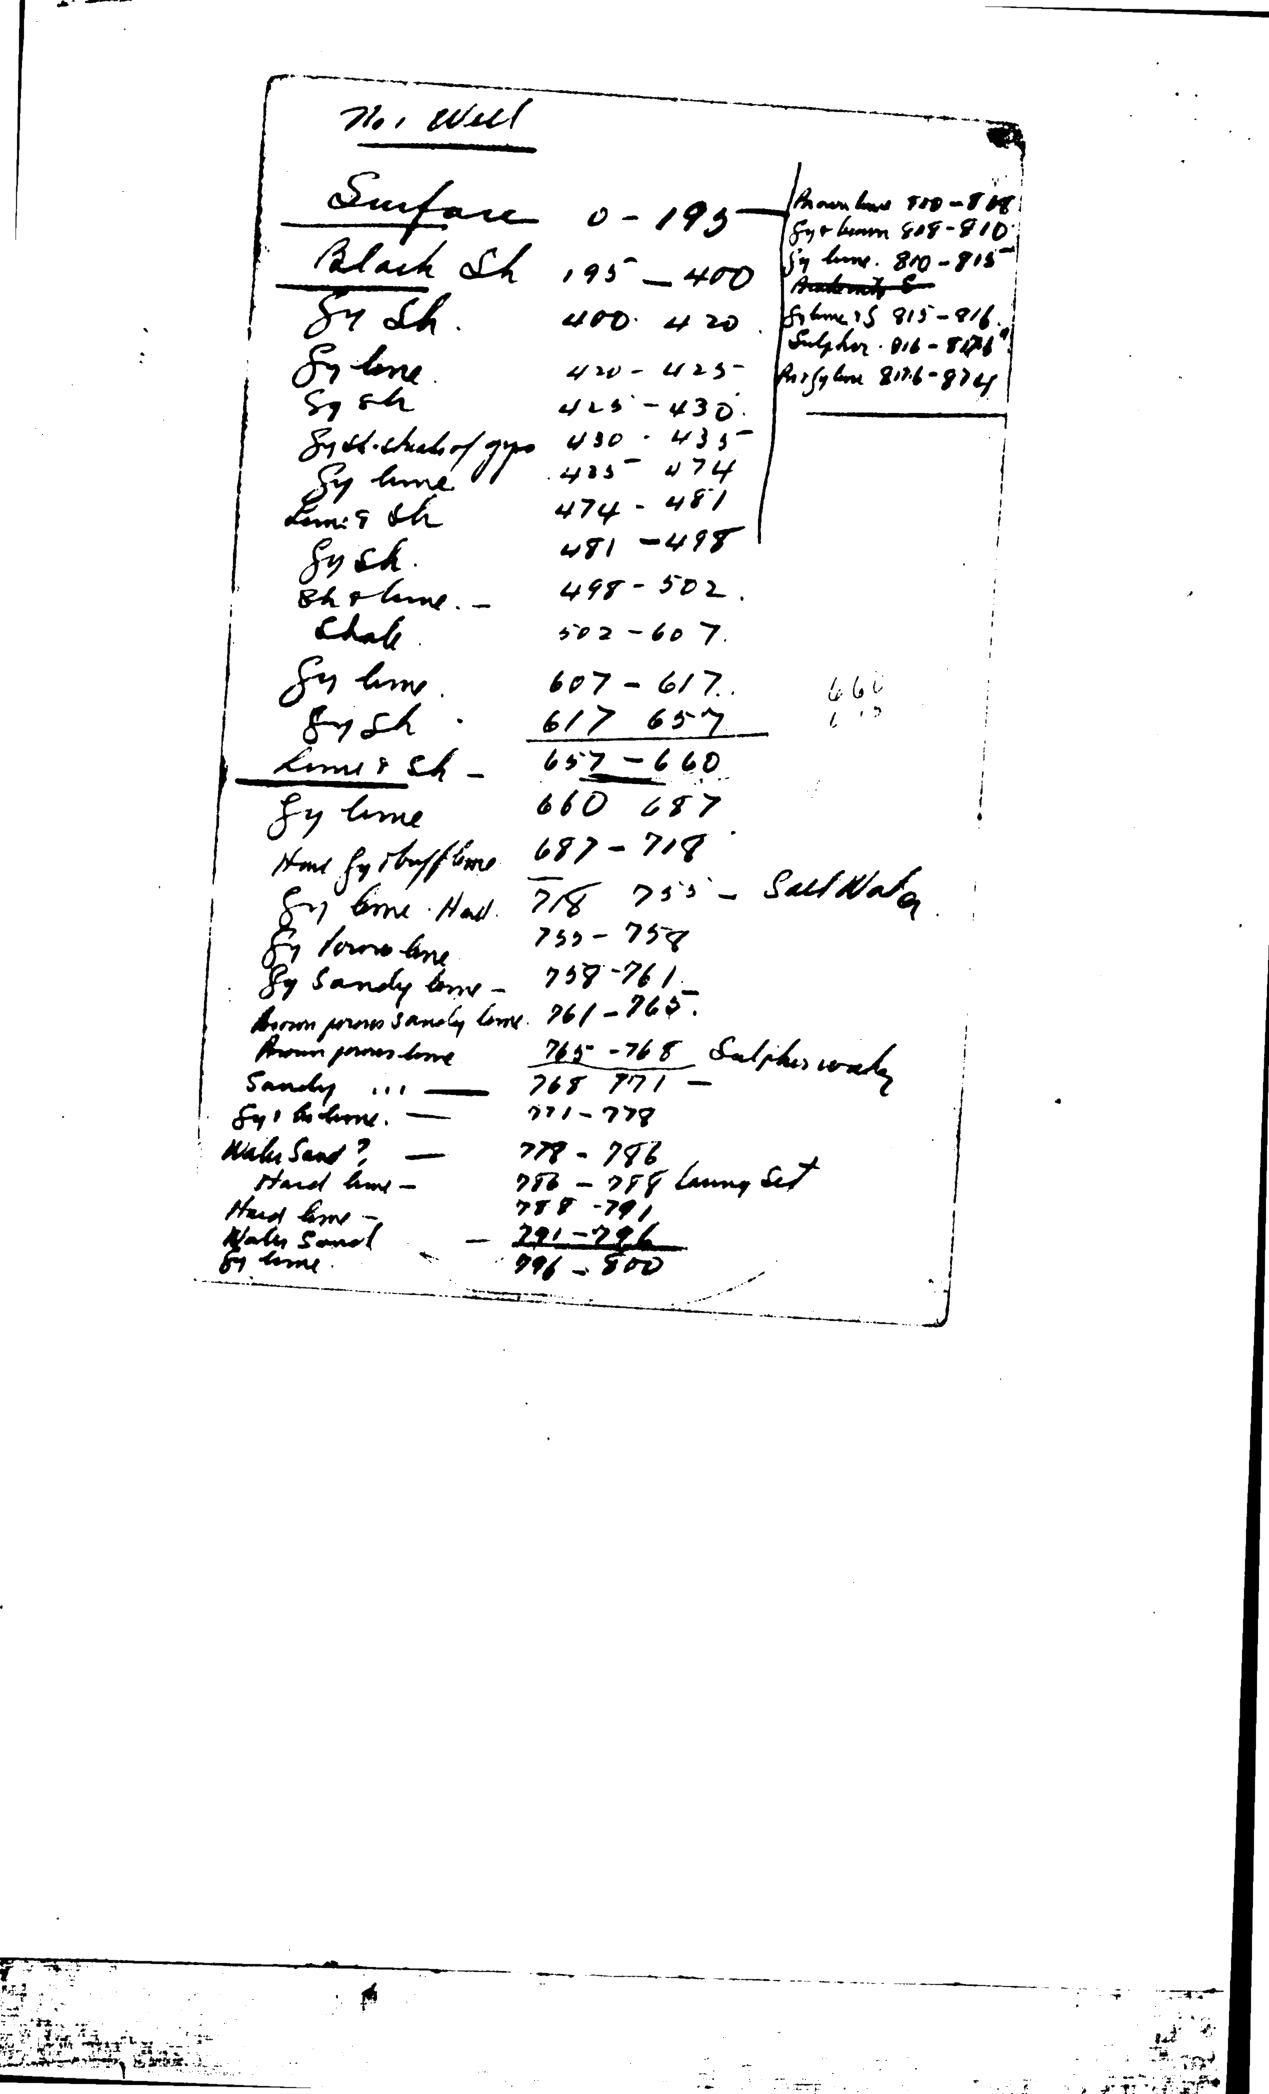 No. 1 Well
Surface 0 - 195
Black Sh 195 - 400
Gy Sh. 400 - 420
Gy lime. 420 - 425
Gy sh 425 - 430
Gy sh. streaks of gyp 430 - 435
Gy lime 435 - 474
Lime & Sh 474 - 481
Gy Sh. 481 - 498
Sh & lime. - 498 - 502.
Shale. 502 - 607.
Gy lime. 607 - 617.
Gy Sh. 617 657
Lime & Sh - 657 - 660
Gy lime 660 687
Hard Gy & buff lime 687 - 718
Gy lime. Hard. 718 755 - Salt Water
Gy Porous lime 755 - 758
Gy Sandy lime - 758 - 761
Brown porous Sandy lime. 761 - 765.
Brown porous lime 765 - 768 Sulphur water
Sandy ,,, — 768 771 -
Gy & Br lime. — 771 - 778
Water Sand? — 778 - 786
Hard lime - 786 - 788 Casing Set
Hard lime - 788 - 791
Water Sand - 791 - 796
Gy lime. 796 - 800
Brown lime 800 - 808
Gy & brown 808 - 810
Gy lime. 810 - 815
Gy lime & S 815 - 816.
Sulphur. 816 - 817.6"
Br & Gy lime 817.6 - 824
660